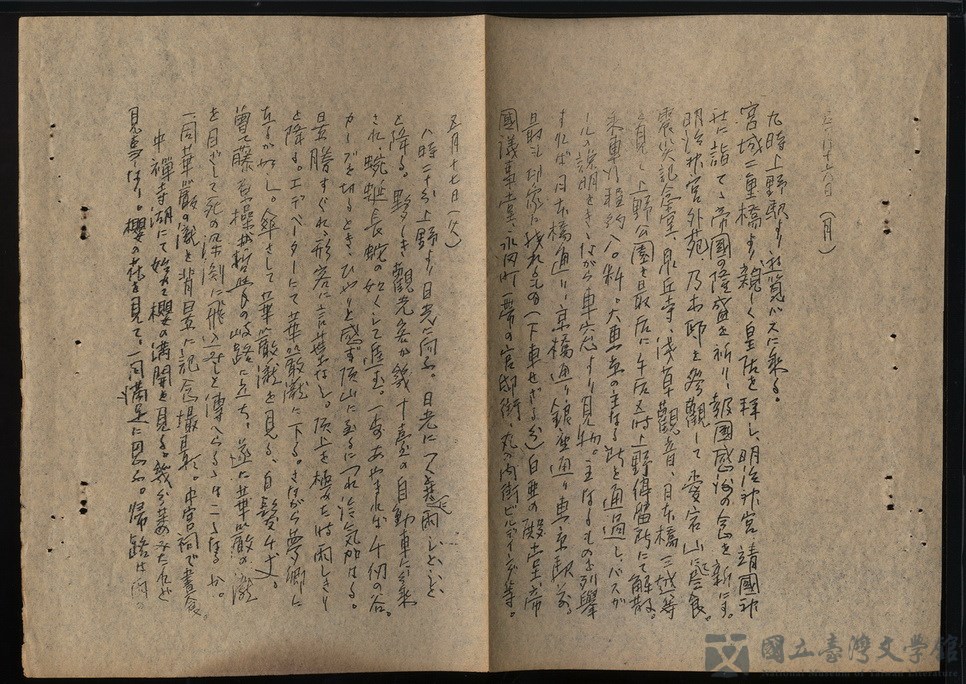 五月十六日（月）
九時上野駅より遊覧バスに乗る。
宮城二重橋より親しく皇居を拝し、明治神宮靖國神
社に詣で、帝國の隆盛を祈り、報國感謝の念を新にす。
明治神宮外苑乃木邸を参観して愛宕山に昼食。
震災記念堂、泉岳寺、浅草觀音、日本橋三越等
を見、上野公園を最后に午后五時上野停留所にて解散。
乗車哩程約八〇粁。大東京の主なる所を通過し、バスガ
ールの説明をききながら車窓より見物。主なるものを列擧
すれば日本橋通り、京橋通り、銀座通り、東京駅、
最も印象に残れるもの（下車せざる分）白亜の殿堂帝
國議事堂、永田町一帯の官邸街、丸の内街ビルディング等。
五月十七日（火）
八時二十分上野より日光に向ふ。日光につく頃雨しとしと
と降る。夥しき觀光客が幾十臺の自動車に分乗
され、蜿蜒長蛇の如くして進む。一歩あやまれば千仞の谷。
カーブを切るとき、ひやりと感ず。頂山に至るにつれ冷気加はる。
景勝すぐれる形容に言葉なし。頂上を極めた時雨しきり
と降る。エレベーターにて華厳瀧に下る。さながら夢郷に
立つが如し。傘さして華厳瀧を見る、白髪千丈。
曾て藤村操が哲学の岐路に立ち、遂に華厳の瀧
を目ざして死の深淵に飛込んだと傳へらるるはここなるか。
一同華厳の瀧を背景に記念撮影。中宮祠で晝食。
中禪寺湖にて始めて櫻の満開を見る。
見事なり。櫻の花を見て、一同満足に思ふ。帰路は雨の
國立臺灣文學館
National Museum of Taiwan Literature